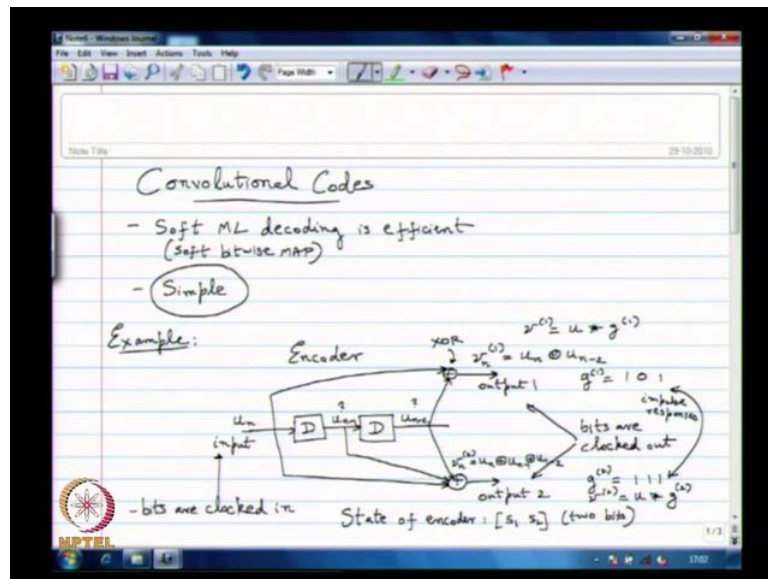 Note6 - Windows Journal
File Edit View Insert Actions Tools Help
Page Width
Note Title
29-10-2010
Convolutional Codes
- Soft ML decoding is efficient
(soft bitwise MAP)
- Simple
Example:
Encoder
XOR
v^(1) = u * g^(1)
v_n^(1) = u_n ⊕ u_{n-2}
output 1
g^(1) = 1 0 1
impulse responses
u_n
input
D
u_{n-1}
D
u_{n-2}
bits are clocked out
v_n^(2) = u_n ⊕ u_{n-1} ⊕ u_{n-2}
output 2
g^(2) = 1 1 1
v^(2) = u * g^(2)
- bits are clocked in
State of encoder: [s₁ s₂] (two bits)
1/3
NPTEL
17:02